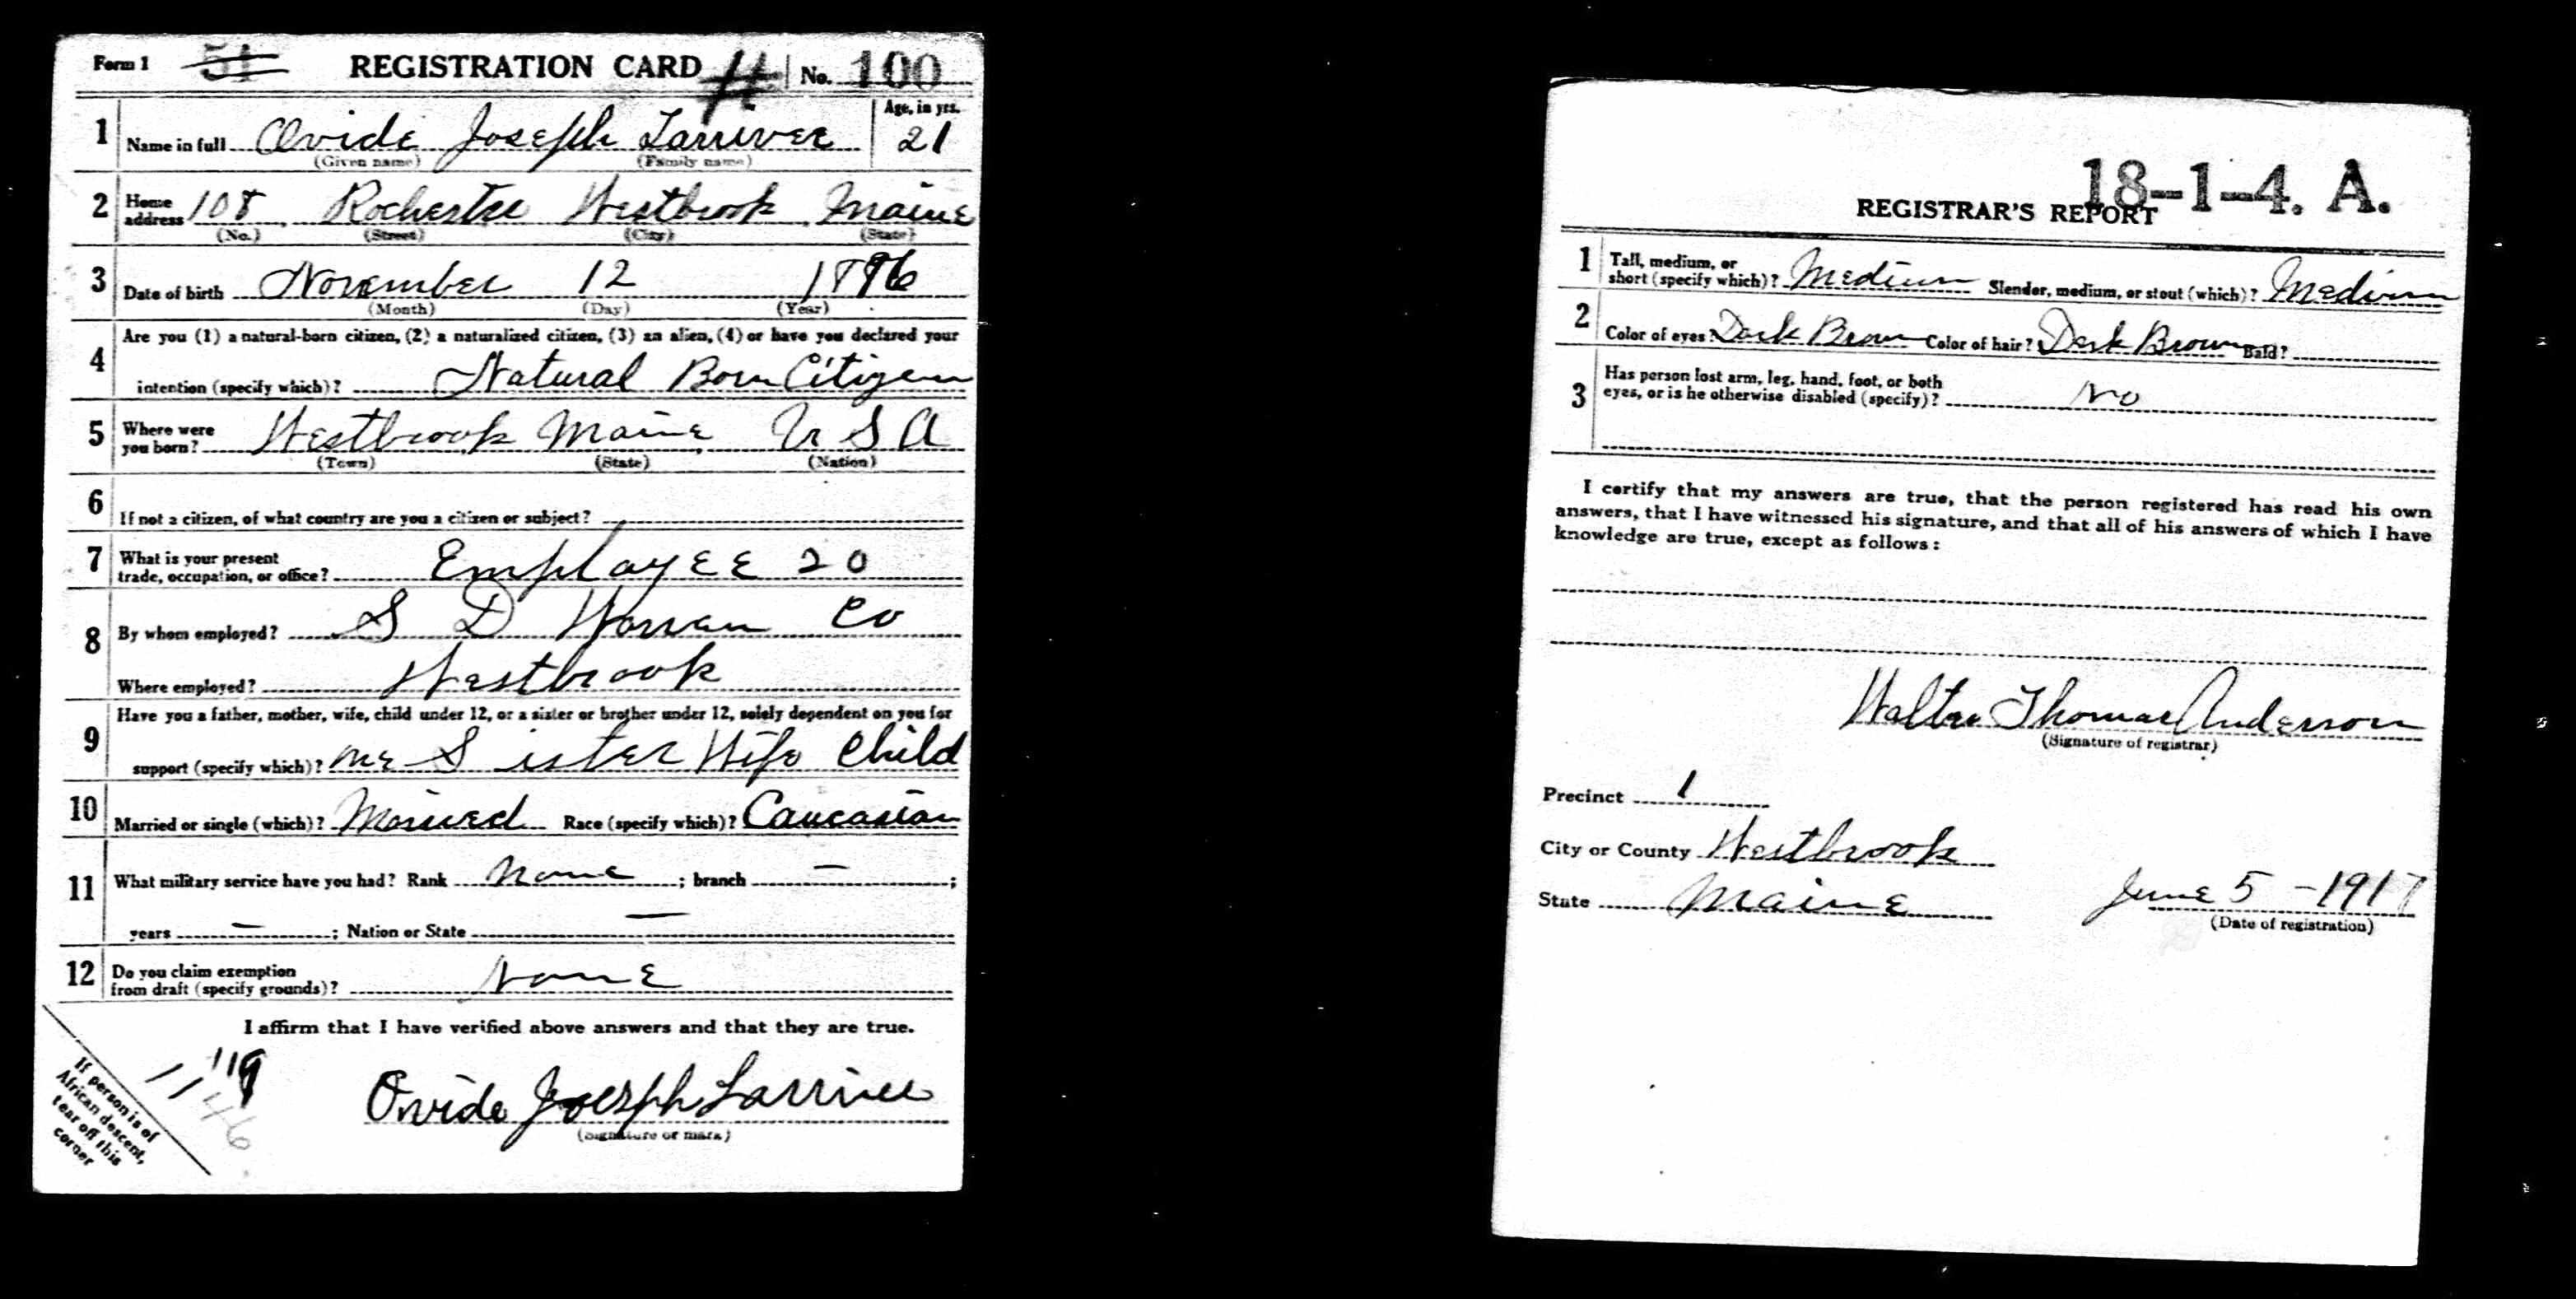 Form 1 51 REGISTRATION CARD No. 100
1 Name in full Ovide Joseph Larrivee Age, in yrs. 21
(Given name) (Family name)
2 Home address 108 Rochester Westbrook Maine
(No.) (Street) (City) (State)
3 Date of birth November 12 1896
(Month) (Day) (Year)
4 Are you (1) a natural-born citizen, (2) a naturalized citizen, (3) an alien, (4) or have you declared your
intention (specify which)? Natural Born Citizen
5 Where were you born? Westbrook Maine U S A
(Town) (State) (Nation)
6 If not a citizen, of what country are you a citizen or subject?
7 What is your present trade, occupation, or office? Employee 20
8 By whom employed? S D Warren Co
Where employed? Westbrook
9 Have you a father, mother, wife, child under 12, or a sister or brother under 12, solely dependent on you for
support (specify which)? Sister Wife Child
10 Married or single (which)? Married Race (specify which)? Caucasian
11 What military service have you had? Rank None ; branch — ;
years — ; Nation or State —
12 Do you claim exemption from draft (specify grounds)? None
I affirm that I have verified above answers and that they are true.
Ovide Joesph Larrivee
(Signature or mark)
If person is of
African descent,
tear off this
corner
18-1-4. A.
REGISTRAR'S REPORT
1 Tall, medium, or short (specify which)? Medium Slender, medium, or stout (which)? Medium
2 Color of eyes? Dark Brown Color of hair? Dark Brown Bald?
3 Has person lost arm, leg, hand, foot, or both
eyes, or is he otherwise disabled (specify)? No
I certify that my answers are true, that the person registered has read his own
answers, that I have witnessed his signature, and that all of his answers of which I have
knowledge are true, except as follows:
Walter Thomas Anderson
(Signature of registrar)
Precinct 1
City or County Westbrook
State Maine June 5 - 1917
(Date of registration)